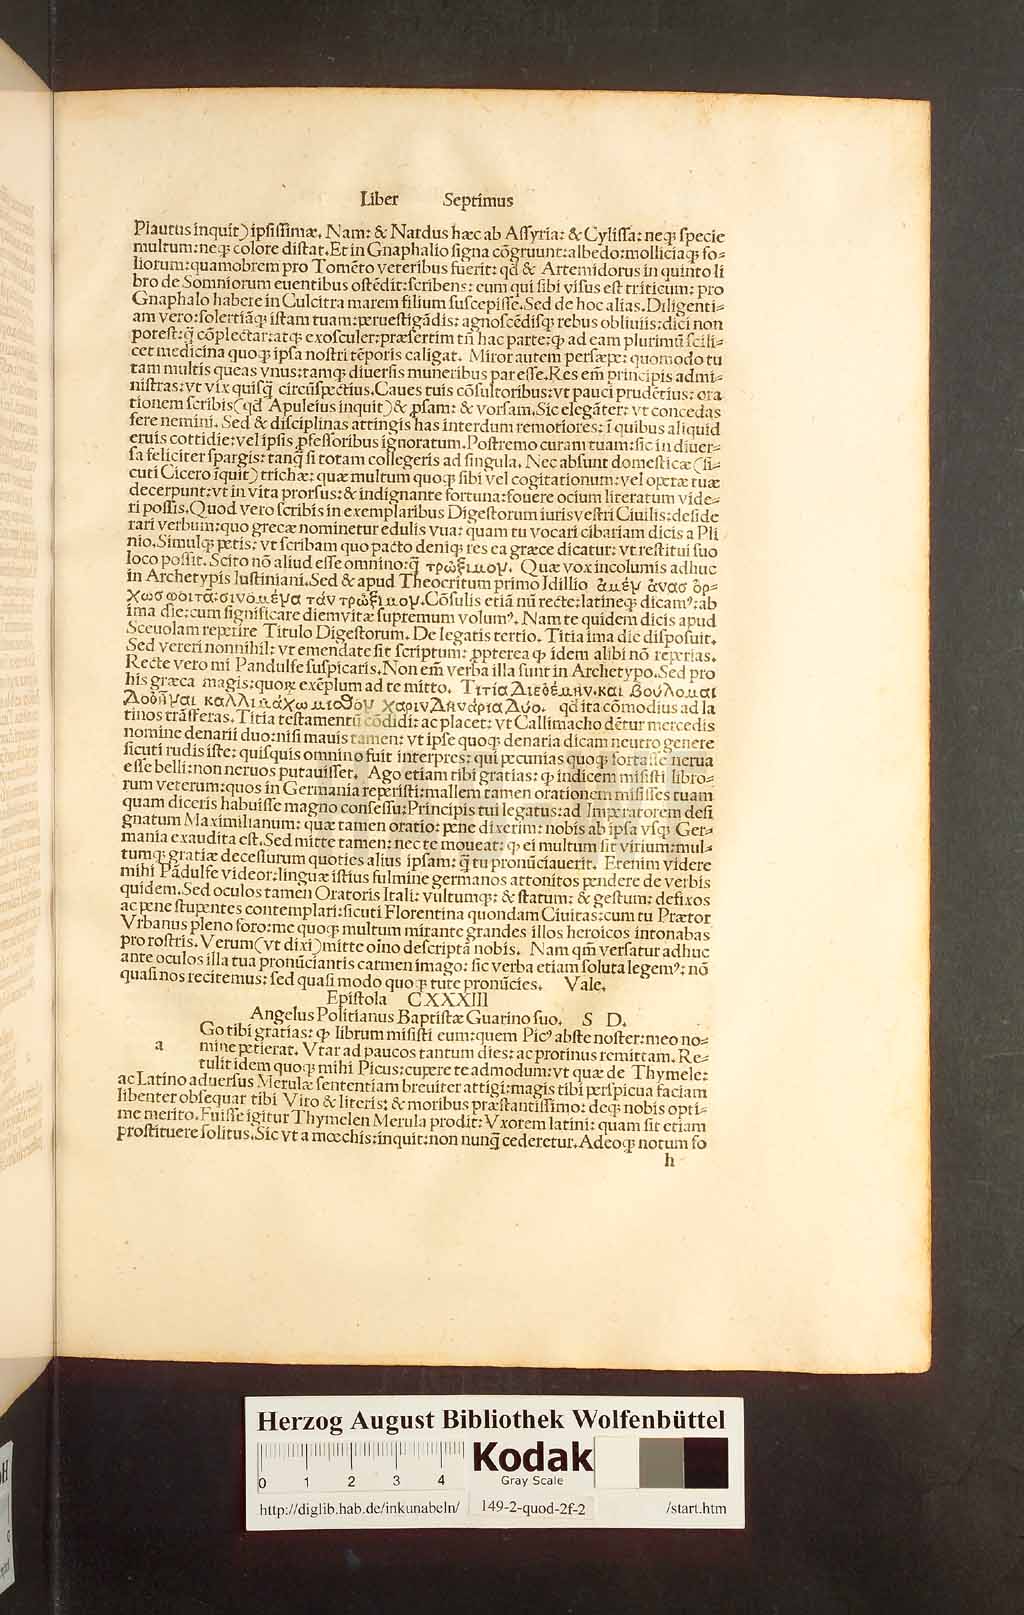 Liber Septimus
Plautus inquit) ipsissimæ. Nam: & Nardus hæc ab Assyria: & Cylissa: neqꝫ specie
multum: neqꝫ colore distat. Et in Gnaphalio signa cõgruunt: albedo: molliciaqꝫ fo⸗
liorum: quamobrem pro Tomẽto veteribus fuerit: qđ & Artemidorus in quinto li
bro de Somniorum euentibus ostẽdit: scribens: eum qui sibi visus est triticum: pro
Gnaphalo habere in Culcitra marem filium suscepisse. Sed de hoc alias. Diligenti⸗
am vero: solertiãqꝫ istam tuam: peruestigãdis: agnoscẽdisqꝫ rebus obliuiis: dici non
potest: q̃ cõplectar: atqꝫ exosculer: præsertim tñ hac parte: ꝙ ad eam plurimũ scili⸗
cet medicina quoqꝫ ipsa nostri tẽporis caligat. Miror autem persæpe: quomodo tu
tam multis queas vnus: tamqꝫ diuersis muneribus par esse. Res em̃ principis admi⸗
nistras: vt vix quisq̃ circũspectius. Caues tuis cõsultoribus: vt pauci prudẽtius: ora
tionem scribis (qđ Apuleius inquit) & ꝓsam: & vorsam. Sic elegãter: vt concedas
fere nemini. Sed & disciplinas attingis has interdum remotiores: ĩ quibus aliquid
eruis cottidie: vel ipsis ꝓfessoribus ignoratum. Postremo curam tuam: sic in diuer⸗
sa feliciter spargis: tanq̃ si totam collegeris ad singula. Nec absunt domesticæ (si⸗
cuti Cicero ĩquit) trichæ: quæ multum quoqꝫ sibi vel cogitationum: vel operæ tuæ
decerpunt: vt in vita prorsus: & indignante fortuna: fouere ocium literatum vide⸗
ri possis. Quod vero scribis in exemplaribus Digestorum iuris vestri Ciuilis: deside
rari verbum: quo grecæ nominetur edulis vua: quam tu vocari cibariam dicis a Pli
nio. Simulqꝫ petis: vt scribam quo pacto deniqꝫ res ea græce dicatur: vt restitui suo
loco possit. Scito nõ aliud esse omnino: q̃ τρώξιμον. Quæ vox incolumis adhuc
in Archetypis Iustiniani. Sed & apud Theocritum primo Idillio ἁμὲν ἀνασ ὀρ⸗
χωσ φοιτᾶ: σινομένα τάν τρώξιμον. Cõsulis etiã nũ recte: latineqꝫ dicamꝰ: ab
ima die: cum significare diem vitæ supremum volumꝰ. Nam te quidem dicis apud
Sceuolam reperire Titulo Digestorum. De legatis tertio. Titia ima die disposuit.
Sed vereri nonnihil: vt emendate sit scriptum: ꝓpterea ꝙ idem alibi nõ reperias.
Recte vero mi Pandulfe suspicaris. Non em̃ verba illa sunt in Archetypo. Sed pro
his græca magis: quoꝝ exẽplum ad te mitto. Τιτία Διεθέμην. και βούλομαι
Δοθῆναι καλλιμάχω μισθοῦ χαριν Δηνάρια Δύο. qđ ita cõmodius ad la
tinos trãsferas. Titia testamentũ cõdidi: ac placet: vt Callimacho dẽtur mercedis
nomine denarii duo: nisi mauis tamen: vt ipse quoqꝫ denaria dicam neutro genere
sicuti rudis iste: quisquis omnino fuit interpres: qui pecunias quoqꝫ fortasse nerua
esse belli: non neruos putauisset. Ago etiam tibi gratias: ꝙ indicem misisti libro⸗
rum veterum: quos in Germania reperisti: mallem tamen orationem misisses tuam
quam diceris habuisse magno consessu: Principis tui legatus: ad Imperatorem desi
gnatum Maximilianum: quæ tamen oratio: pene dixerim: nobis ab ipsa vsqꝫ Ger⸗
mania exaudita est. Sed mitte tamen: nec te moueat: ꝙ ei multum sit virium: mul⸗
tumqꝫ gratiæ decessurum quoties alius ipsam: q̃ tu pronũciauerit. Etenim videre
mihi Pãdulfe videor: linguæ istius fulmine germanos attonitos pendere de verbis
quidem. Sed oculos tamen Oratoris Itali: vultumqꝫ: & statum: & gestum: defixos
ac pene stupentes contemplari: sicuti Florentina quondam Ciuitas: cum tu Prætor
Vrbanus pleno foro: me quoqꝫ multum mirante grandes illos heroicos intonabas
pro rostris. Verum (vt dixi) mitte oĩno descriptã nobis. Nam qm̃ versatur adhuc
ante oculos illa tua pronũciantis carmen imago: sic verba etiam soluta legemꝰ: nõ
quasi nos recitemus: sed quasi modo quoqꝫ tute pronũcies. Vale.
Epistola CXXXIII
Angelus Politianus Baptistæ Guarino suo. S D.
a Go tibi gratias: ꝙ librum misisti eum: quem Picꝰ abs te noster: meo no⸗
mine petierat. Vtar ad paucos tantum dies: ac protinus remittam. Re⸗
tulit idem quoqꝫ mihi Picus: cupere te admodum: vt quæ de Thymele:
ac Latino aduersus Merulæ sententiam breuiter attigi: magis tibi perspicua faciam
libenter obsequar tibi Viro & literis: & moribus præstantissimo: deqꝫ nobis opti⸗
me merito. Fuisse igitur Thymelen Merula prodit: Vxorem latini: quam sit etiam
prostituere solitus. Sic vt a mœchis: inquit: non nunq̃ cederetur. Adeoqꝫ notum fo
h
Herzog August Bibliothek Wolfenbüttel
0 1 2 3 4
Kodak
Gray Scale
http://diglib.hab.de/inkunabeln/ 149-2-quod-2f-2 /start.htm